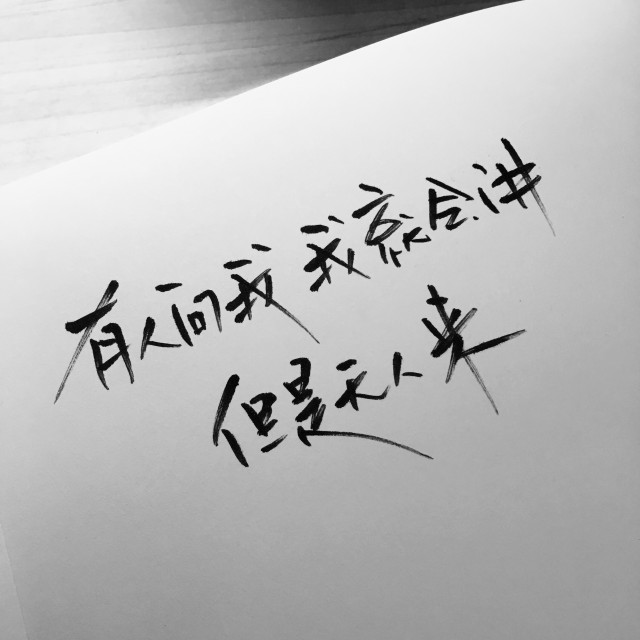 有人问我我就会讲
但是无人来